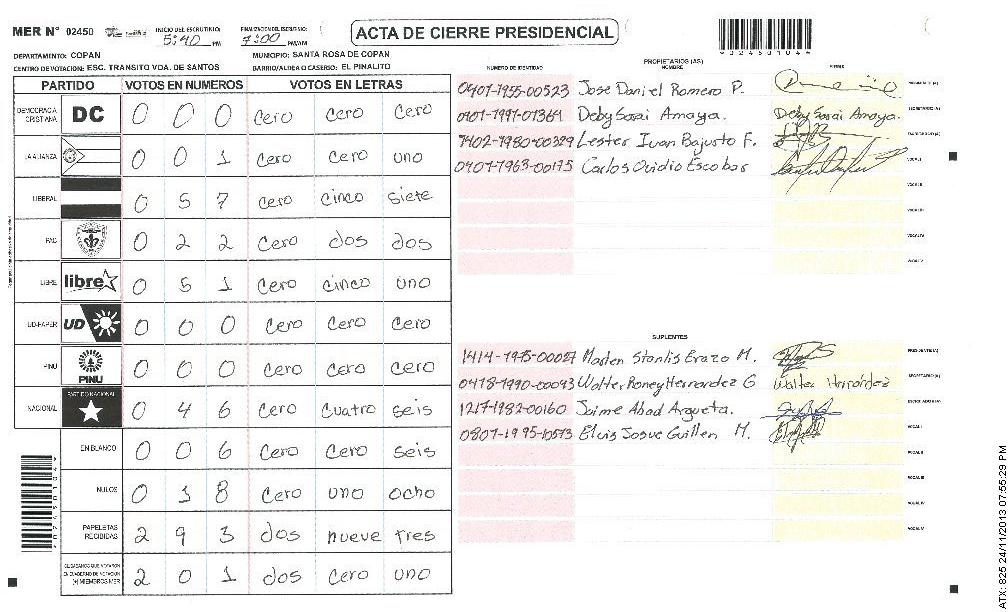 MER N° 02450
INICIO DEL ESCRUTINIO: 5:40 PM
FINALIZACION DEL ESCRUTINIO: 7:00 PM/AM
ACTA DE CIERRE PRESIDENCIAL
DEPARTAMENTO: COPAN
MUNICIPIO: SANTA ROSA DE COPAN
CENTRO DE VOTACION: ESC. TRANSITO VDA. DE SANTOS
BARRIO/ALDEA O CASERIO: EL PINALITO
PARTIDO VOTOS EN NUMEROS VOTOS EN LETRAS
DEMOCRACIA CRISTIANA DC 0 0 0 cero cero cero
LA ALIANZA 0 0 1 cero cero uno
LIBERAL 0 5 7 cero cinco siete
PAC 0 2 2 cero dos dos
LIBRE libre 0 5 1 cero cinco uno
UD-FAPER UD 0 0 0 cero cero cero
PINU PINU 0 0 0 cero cero cero
NACIONAL PARTIDO NACIONAL 0 4 6 cero cuatro seis
EN BLANCO 0 0 6 cero cero seis
NULOS 0 1 8 cero uno ocho
PAPELETAS RECIBIDAS 2 9 3 dos nueve tres
CIUDADANOS QUE VOTARON EN CUADERNO DE VOTACION (+) MIEMBROS MER 2 0 1 dos cero uno
PROPIETARIOS (AS)
NUMERO DE IDENTIDAD NOMBRE FIRMA
0401-1955-00523 Jose Daniel Romero P. PRESIDENTE (A)
0401-1991-01369 Deby Sarai Amaya. Deby Sarai Amaya. SECRETARIO (A)
1402-1980-00329 Lester Ivan Bajusto F. ESCRUTADOR (A)
0401-1963-00175 Carlos Ovidio Escobar VOCAL I
VOCAL II
VOCAL III
VOCAL IV
VOCAL V
SUPLENTES
1414-1975-00027 Marlen Stanlis Erazo M. PRESIDENTE (A)
0418-1990-00093 Walter Roney Hernandez G Walter Hernández SECRETARIO (A)
1217-1982-00160 Jaime Abad Argueta. ESCRUTADOR (A)
0801-1995-10573 Elvis Josue Guillen M. VOCAL I
VOCAL II
VOCAL III
VOCAL IV
VOCAL V
ATX: 825 24/11/2013 07:55:29 PM